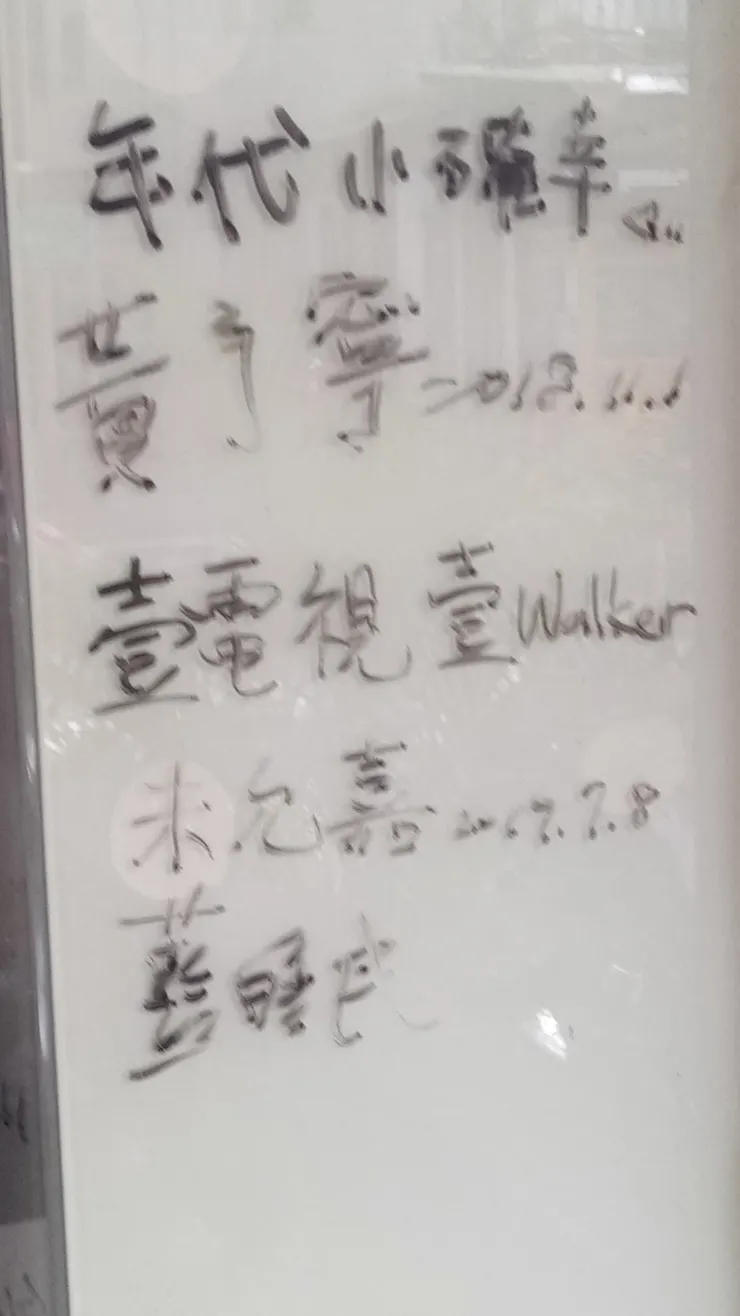 年代小確幸
黃予寧 2018.11.1
壹電視 壹Walker
朱允嘉 2017.7.8
藍